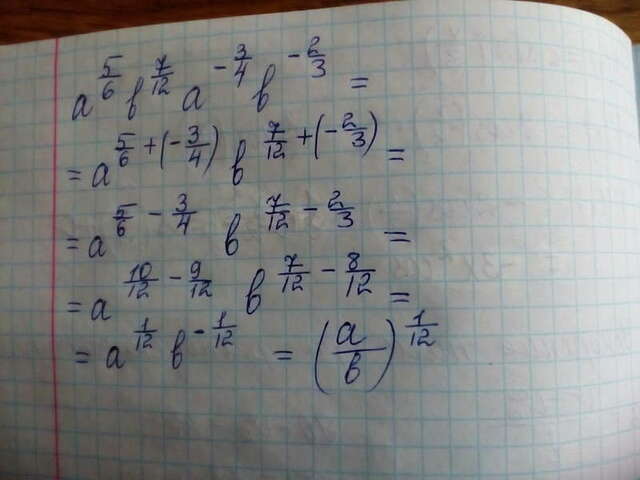 a^{5/6} b^{7/12} a^{-3/4} b^{-2/3} =
= a^{5/6 + (-3/4)} b^{7/12 + (-2/3)} =
= a^{5/6 - 3/4} b^{7/12 - 2/3} =
= a^{10/12 - 9/12} b^{7/12 - 8/12} =
= a^{1/12} b^{-1/12} = (a/b)^{1/12}